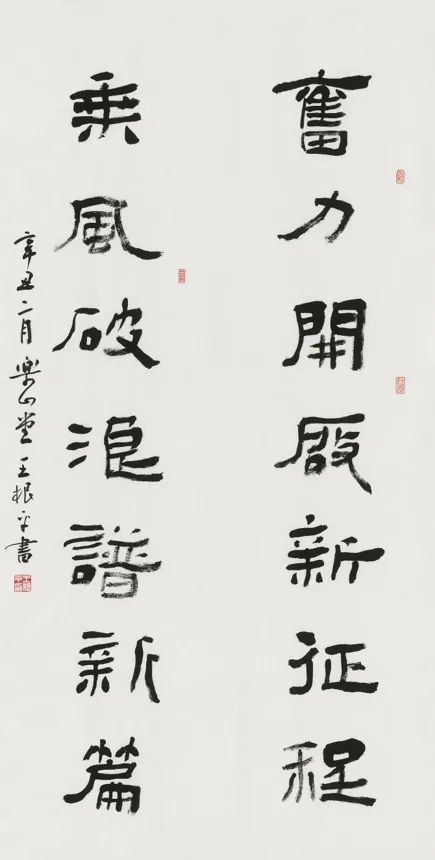 奮力開啟新征程
乘風破浪譜新篇
辛丑二月樂山堂王根平書